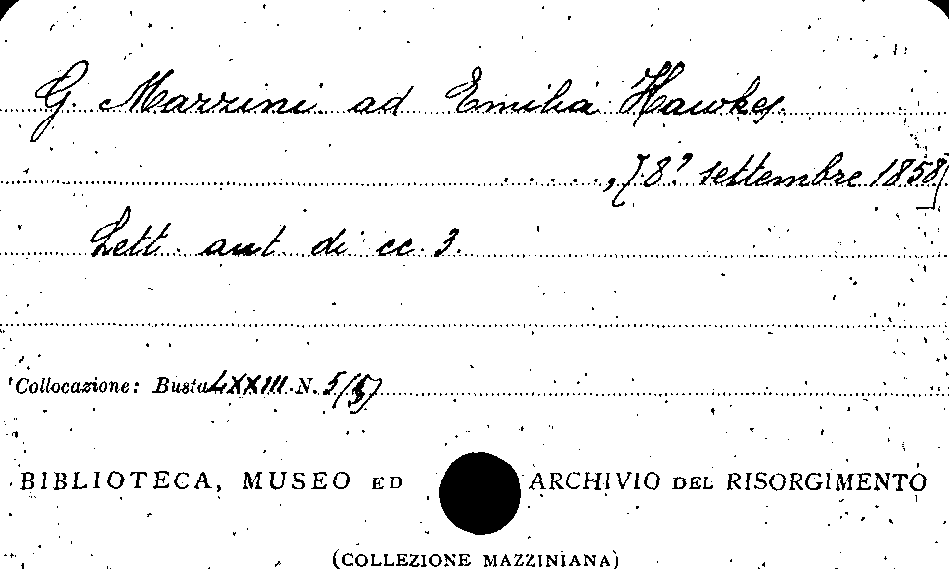 G. Mazzini ad Emilia Hawkes.
....., [8? settembre 1858]
Lett. aut. di cc. 3.
Collocazione: Busta LXXIII N. 5/(5)
BIBLIOTECA, MUSEO ED ARCHIVIO DEL RISORGIMENTO
(COLLEZIONE MAZZINIANA)